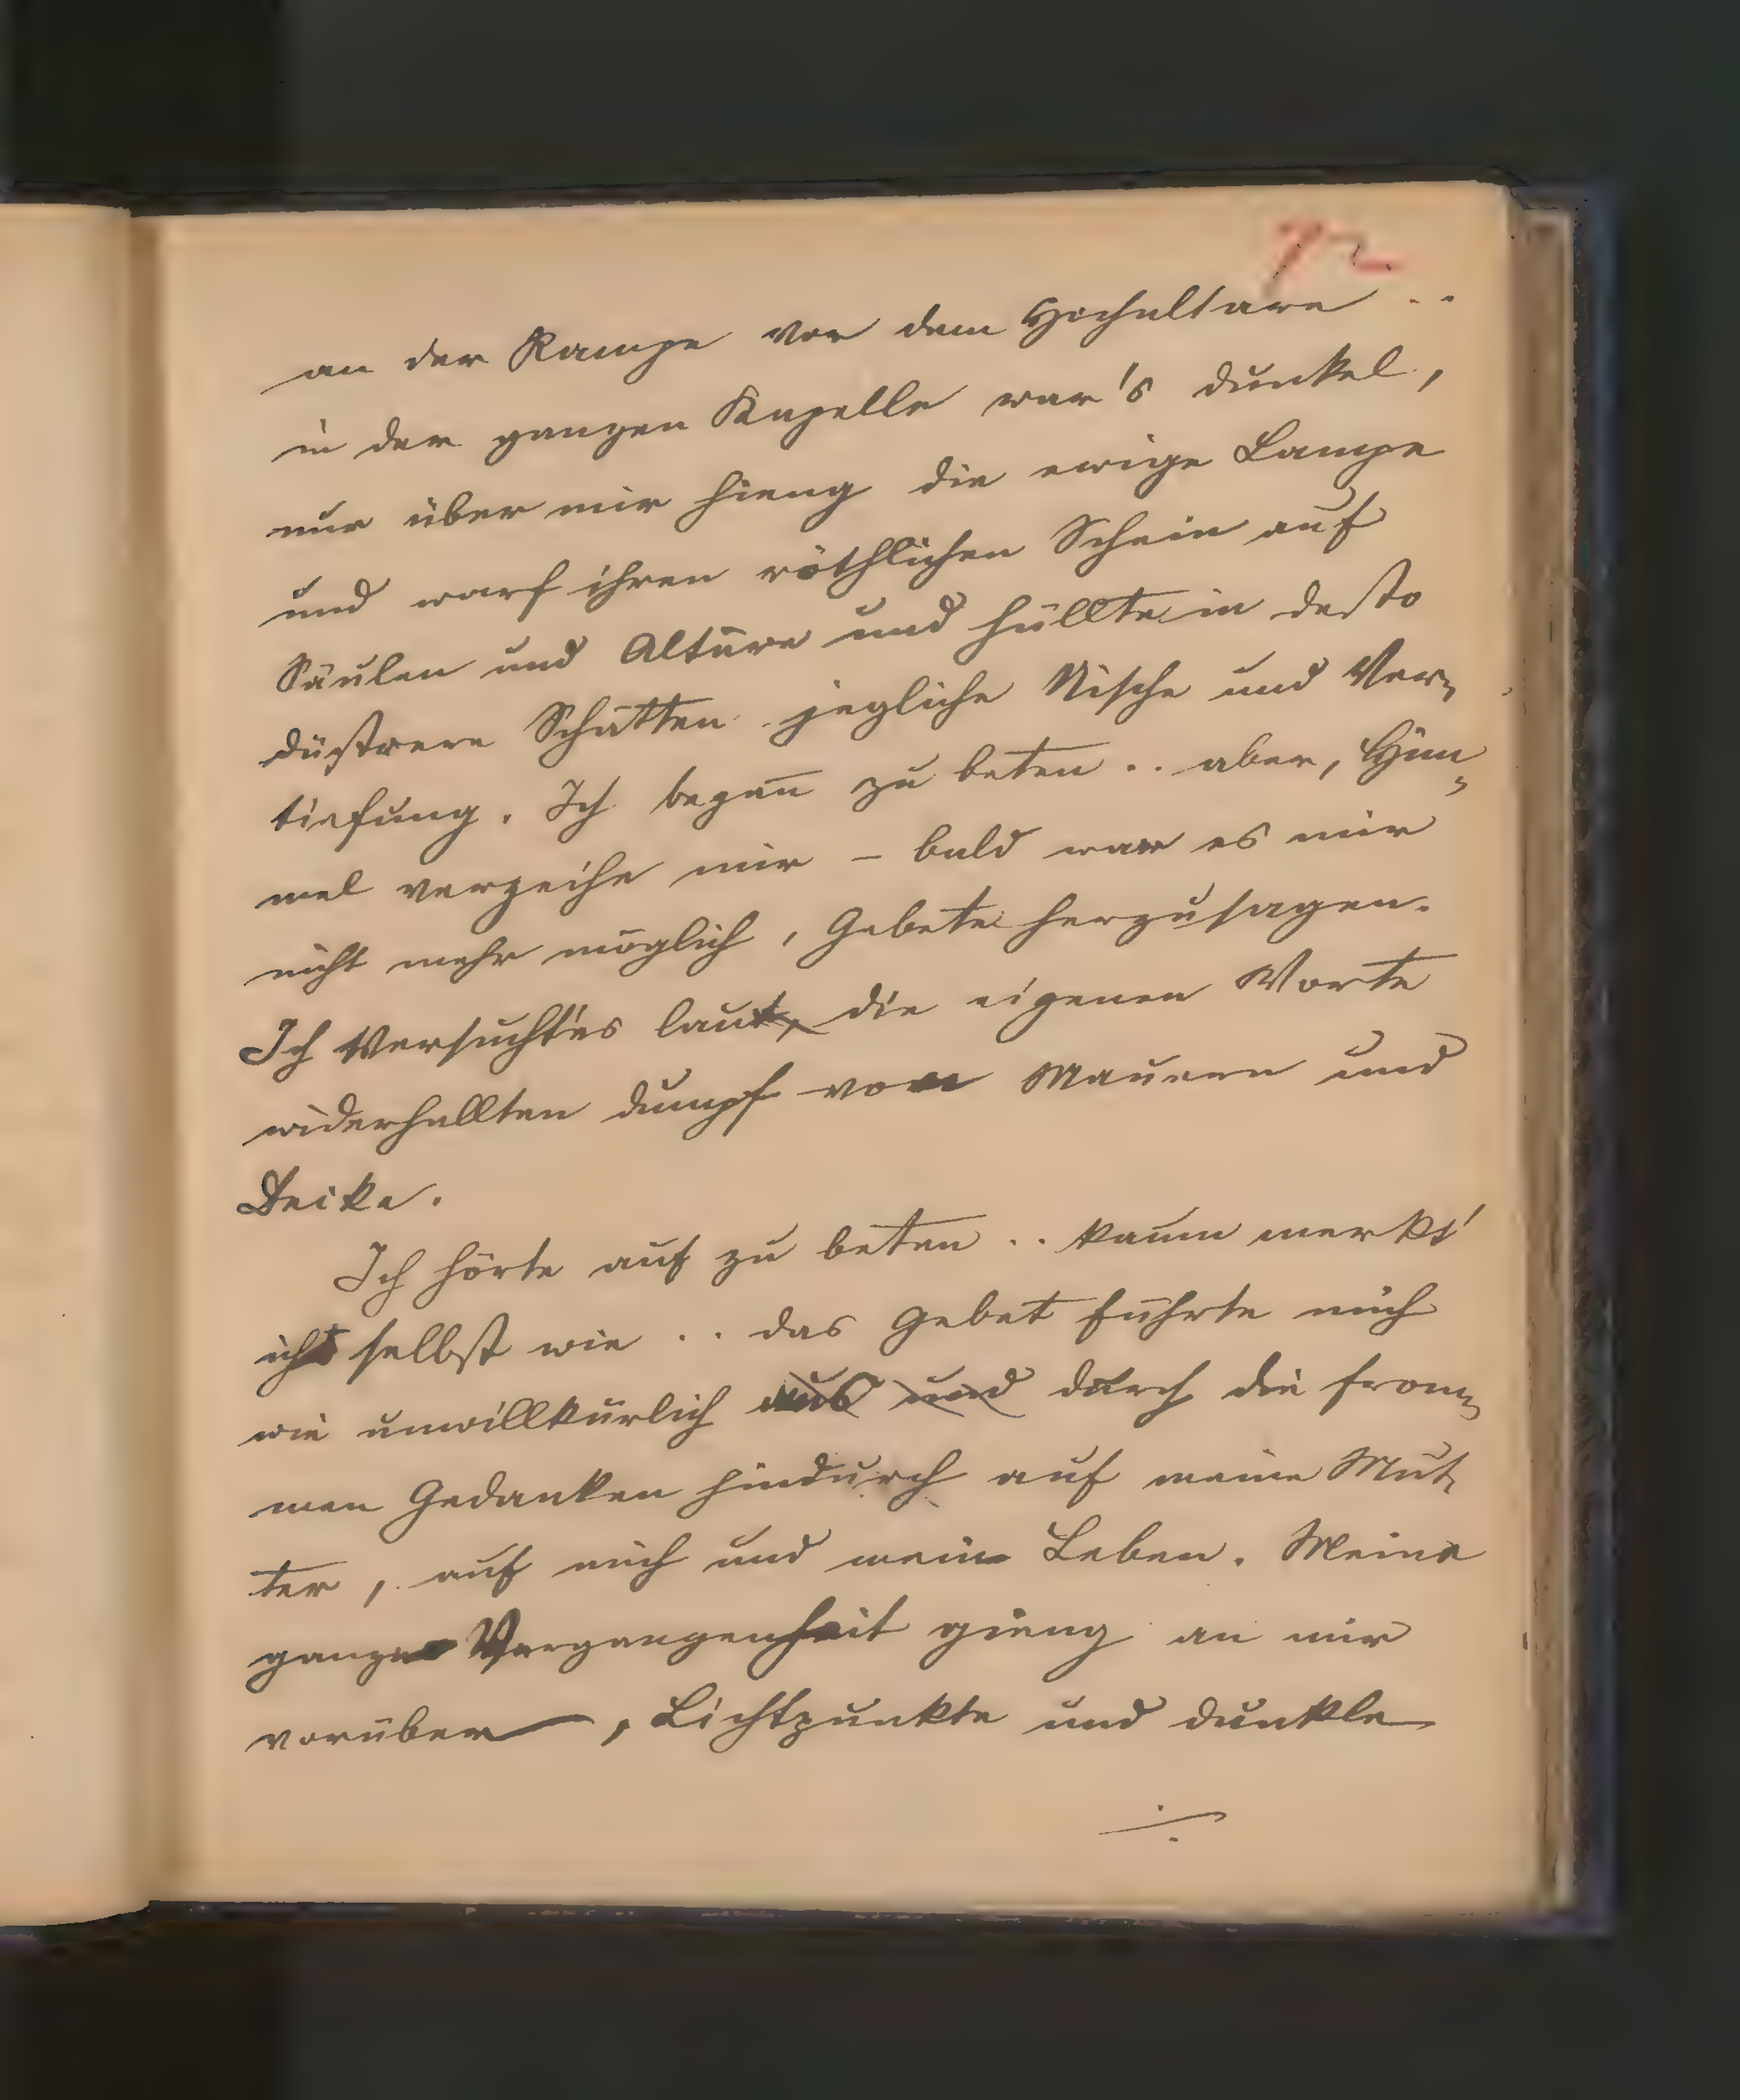 72
an der Rampe vor dem Hochaltare ..
in der ganzen Kapelle war's dunkel,
nur über mir hieng die ewige Lampe
und warf ihren röthlichen Schein auf
Säulen und Altäre und hüllte in desto
düstrere Schatten jegliche Nische und Ver-
tiefung. Ich begann zu beten .. aber, Him-
mel verzeihe mir – bald war es mir
nicht mehr möglich, Gebete herzusagen.
Ich versucht'es laut, die eigenen Worte
widerhallten dumpf von Mauern und
Decke.
Ich hörte auf zu beten .. kaum merkt'
ich selbst wie .. das Gebet führte mich
wie unwillkürlich aus und durch die from-
men Gedanken hindurch auf meine Mut-
ter, auf mich und mein Leben. Meine
ganze Vergangenheit gieng an mir
vorüber, Lichtpunkte und dunkle